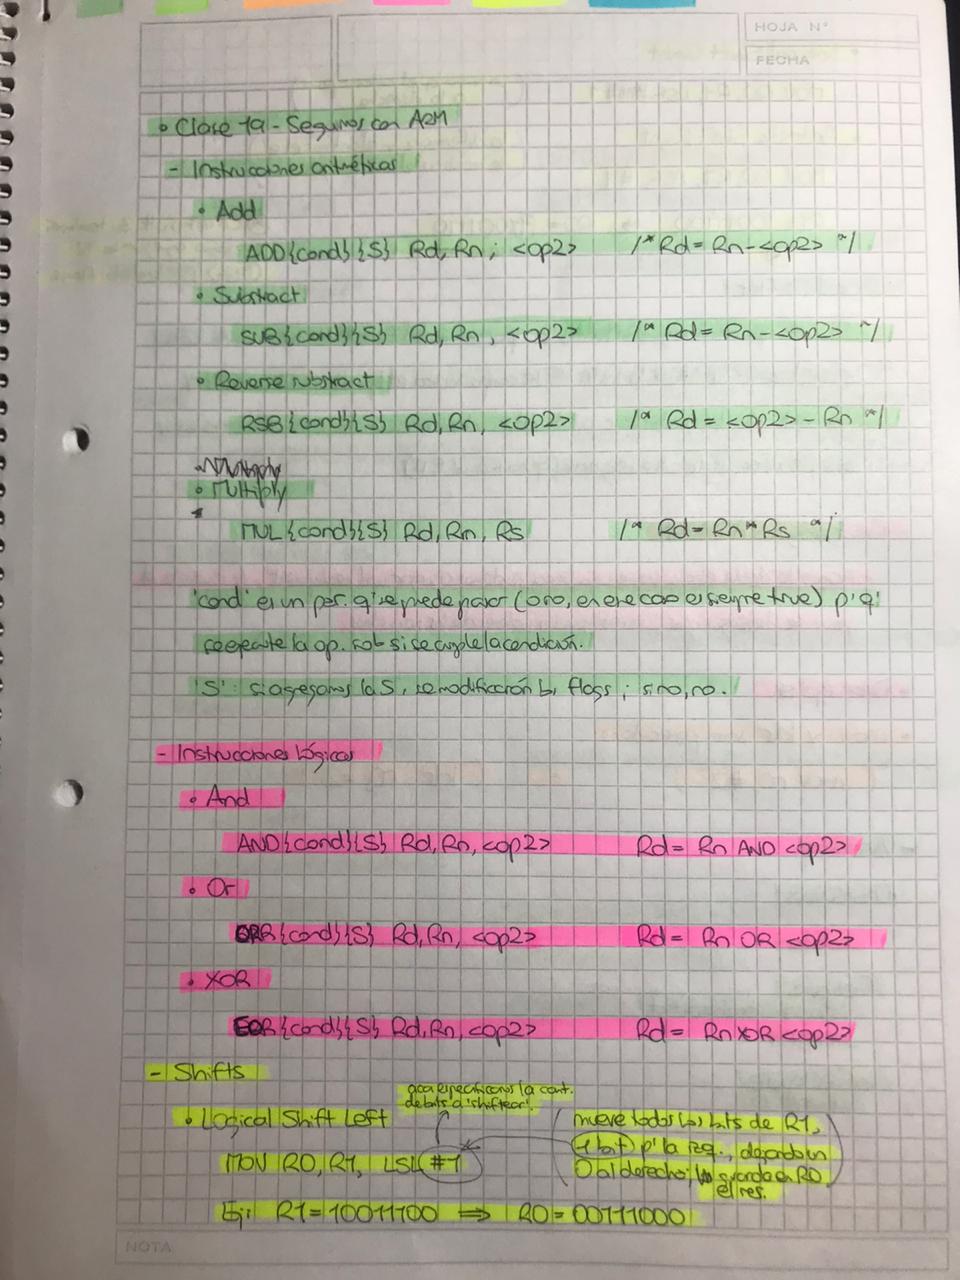 HOJA Nº
FECHA
• Clase 19 - Seguimos con ARM
- Instrucciones aritméticas
• Add
ADD{cond}{S} Rd, Rn, <op2> /* Rd = Rn - <op2> */
• Substract
SUB{cond}{S} Rd, Rn, <op2> /* Rd = Rn - <op2> */
• Reverse substract
RSB{cond}{S} Rd, Rn, <op2> /* Rd = <op2> - Rn */
• Multiply
MUL{cond}{S} Rd, Rn, Rs /* Rd = Rn * Rs */
'cond' es un par. q' se puede pasar (o no, en ese caso es siempre true) p' q'
se ejecute la op. solo si se cumple la condición.
'S': si agregamos la S, se modificarán los flags; si no, no.
- Instrucciones lógicas
• And
AND{cond}{S} Rd, Rn, <op2> Rd = Rn AND <op2>
• Or
ORR{cond}{S} Rd, Rn, <op2> Rd = Rn OR <op2>
• XOR
EOR{cond}{S} Rd, Rn, <op2> Rd = Rn XOR <op2>
- Shifts
acá especificamos la cant.
de bits a 'shiftear'.
• Logical Shift Left
MOV R0, R1, LSL #1
(mueve todos los bits de R1,
(1 bit) p' la izq., dejando un
0 al derecho; guarda en R0
el res.)
Ej: R1 = 10011100 ⟹ R0 = 00111000
NOTA